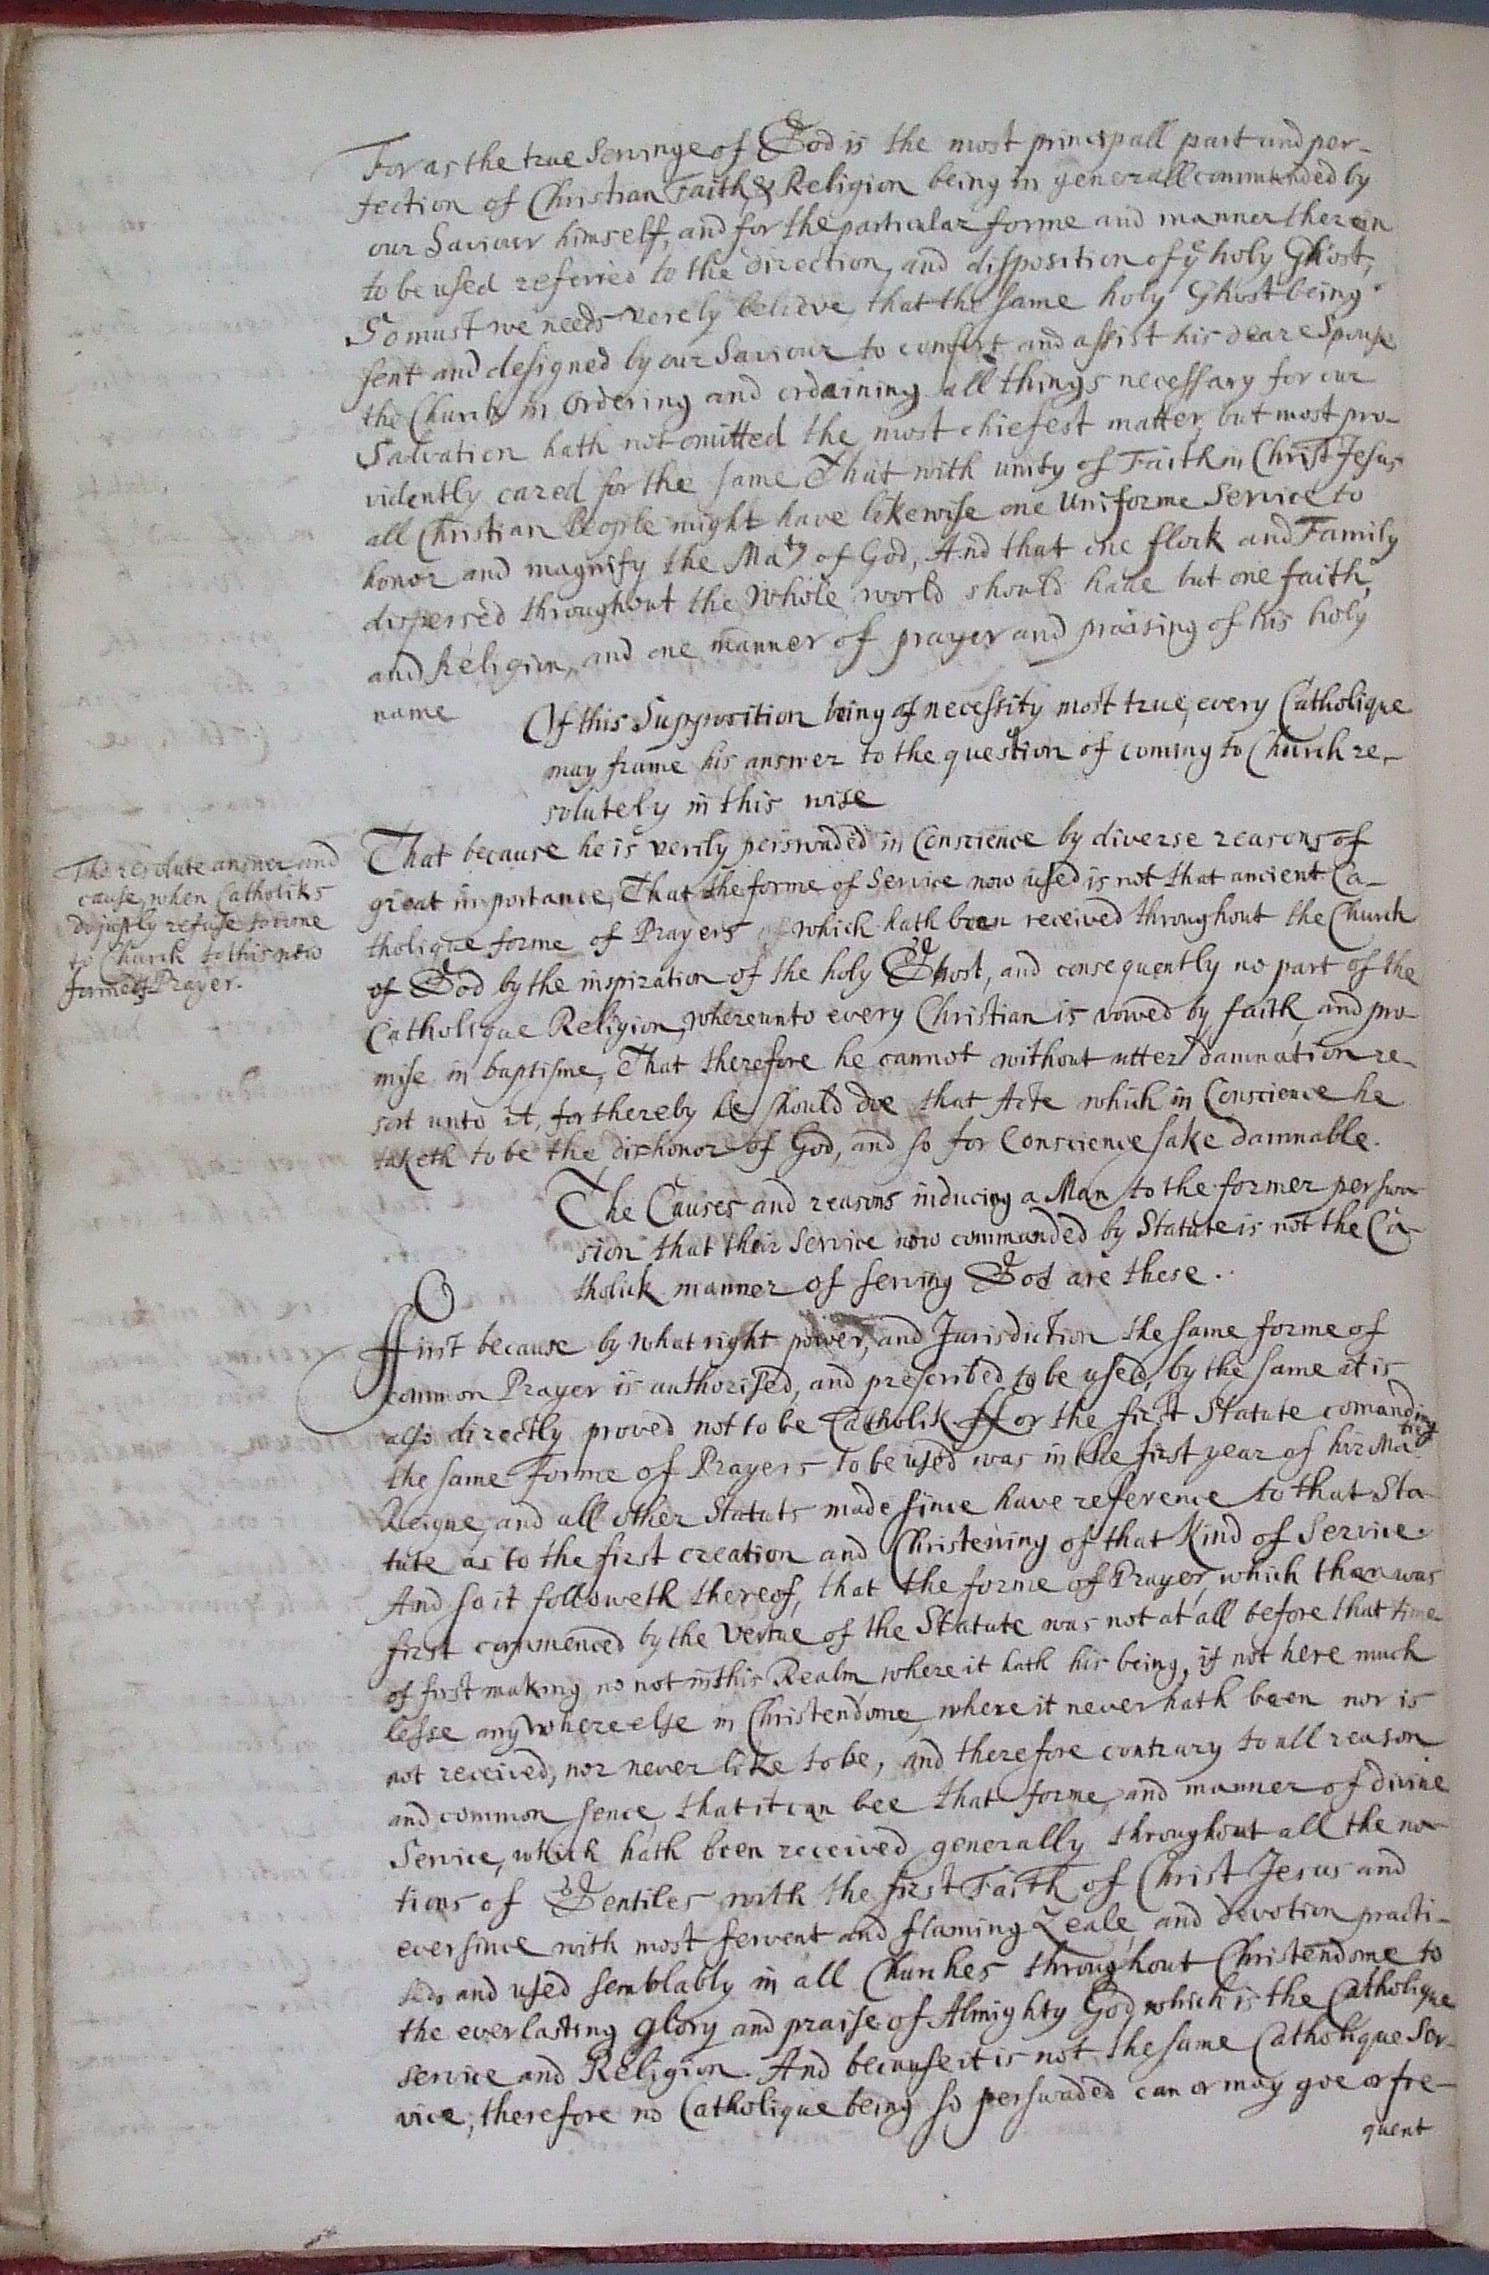 For as the true Servinge of God is the most principall part and per-
fection of Christian Faith & Religion being in generall commanded by
our Saviour himself, and for the particular forme and manner therein
to be used referred to the direction, and disposition of ye holy Ghost,
So must we needs verely believe, that the same holy Ghost being
sent and designed by our Saviour to comfort and assist his deare Spouse
the Church in Ordering and ordaining all things necessary for our
Salvation hath not omitted the most chiefest matter, but most pro-
vidently cared for the same, That with unity of Faith in Christ Jesus
all Christian People might have likewise one Uniforme Service to
honor and magnify the Maty of God, And that one flock and Family
dispersed throughout the Whole world should have but one faith,
and Religion, and one manner of prayer and praising of his holy
name
Of this Supposition being of necessity most true, every Catholique
may frame his answer to the question of coming to Church re-
solutely in this wise
The resolute answer and
cause, when Catholiks
refuse to come
to Church to this new
forme of Prayer.
That because he is verily perswaded in Conscience by diverse reasons of
great importance, That the forme of Service now used is not that ancient Ca-
tholique forme of Prayers which hath been received throughout the Church
of God by the inspiration of the holy Ghost, and consequently no part of the
Catholique Religion, whereunto every Christian is vowed by faith, and pro-
mise in baptisme, That therefore he cannot without utter damnation re-
sort unto it, for thereby he should doe that Acte which in Conscience he
taketh to be the dishonor of God, and so for Conscience sake damnable.
The Causes and reasons inducing a Man to the former perswa-
sion that their Service now commanded by Statute is not the Ca-
tholick manner of serving God are these.
First because by what right power, and Jurisdiction the same forme of
common Prayer is authorised, and prescribed to be used, by the same it is
also directly proved not to be Catholik. ffor the first Statute comanding
the same forme of Prayers to be used was in the first year of hir Maties
Reigne, and all other Statuts made since have reference to that Sta-
tute as to the first creation and Christening of that Kind of Service.
And so it followeth thereof, that the forme of Prayer, which than was
first commenced by the Vertue of the Statute was not at all before that time
of first making, no not in this Realm where it hath his being, if not here much
lesse any where else in Christendome, where it never hath been nor is
not received, nor never like to be, and therefore contrary to all reason
and common sence, that it can bee that forme, and manner of divine
Service, which hath been received generally throughout all the na-
tions of Gentiles with the first Faith of Christ Jesus and
ever since with most fervent and flaming Zeale, and devotion practi-
sed and used semblably in all Churches throughout Christendome to
the everlasting glory and praise of Almighty God which is the Catholique
service and Religion. And because it is not the same Catholique Ser-
vice, therefore no Catholique being so perswaded can or may goe or fre-
quent